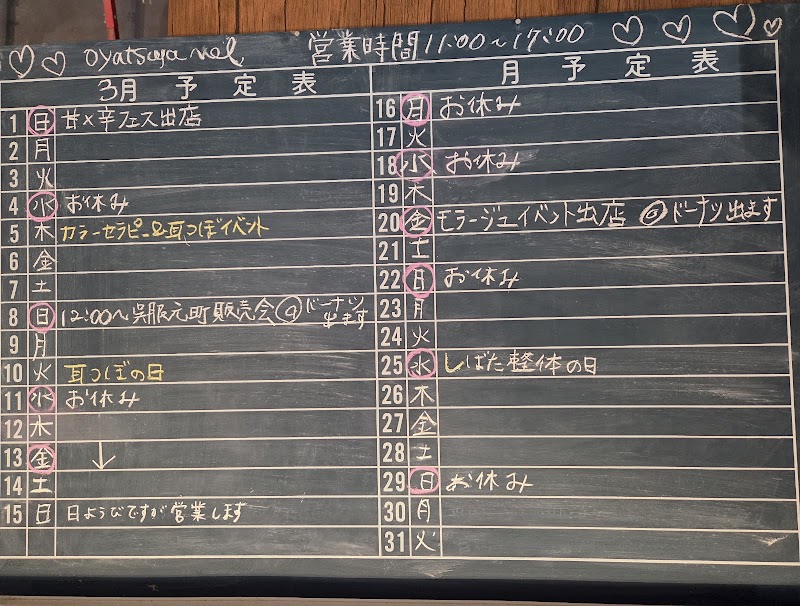 oyatsuya nel 営業時間 11:00〜17:00
3月 予定表
1 日 甘×辛フェス出店
2 月
3 火
4 水 お休み
5 木 カラーセラピー&耳つぼイベント
6 金
7 土
8 日 12:00〜呉服元町販売会 ドーナツ出ます
9 月
10 火 耳つぼの日
11 水 お休み
12 木
13 金 ↓
14 土
15 日 日ようびですが営業します
月 予定表
16 月 お休み
17 火
18 水 お休み
19 木
20 金 モラージュイベント出店 ドーナツ出ます
21 土
22 日 お休み
23 月
24 火
25 水 しばた整体の日
26 木
27 金
28 土
29 日 お休み
30 月
31 火